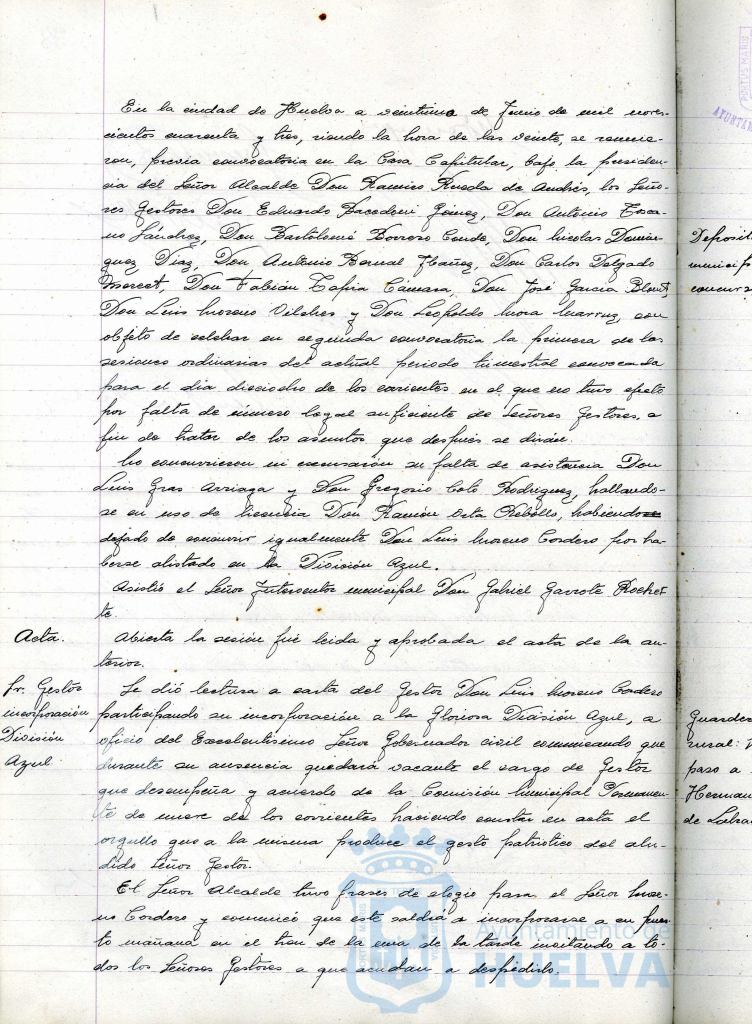 En la ciudad de Huelva a veintiuno de Junio de mil nove-
cientos cuarenta y tres, siendo la hora de las veinte, se reunie-
ron, previa convocatoria en la Casa Capitular, bajo la presiden-
cia del Señor Alcalde Don Ramiro Rueda de Andrés, los Seño-
res Gestores Don Eduardo Gómez, Don Antonio Tosca-
no Sánchez, Don Bartolomé Borrero Conde, Don Nicolas Domin-
guez Diaz, Don Antonio Bernal Ibañez, Don Carlos Delgado
Don Fabián Tapia Cámara, Don José Garcia
Don Luis Moreno Vilches y Don Leopoldo Mora con
objeto de celebrar en segunda convocatoria la primera de las
sesiones ordinarias del actual periodo trimestral convocada
para el dia dieciocho de los corrientes en el que no tuvo efecto
por falta de número legal suficiente de Señores Gestores, a
fin de tratar de los asuntos que después se dirán.
No concurrieron ni excusaron su falta de asistencia Don
Luis Gras Arriaga y Don Gregorio Coto Rodriguez, hallando-
se en uso de licencia Don Ramón Orta Rebollo, habiendo
dejado de concurrir igualmente Don Luis Moreno Cordero por ha-
berse alistado en la División Azul.
Asistió el Señor Interventor municipal Don Gabriel Garrote Rochet-
te.
Acta.
Abierta la sesión fué leida y aprobada el acta de la an-
terior.
Sr. Gestor
incorporación
División
Azul.
Se dió lectura a carta del Gestor Don Luis Moreno Cordero
participando su incorporación a la Gloriosa División Azul, a
oficio del Excelentísimo Señor Gobernador civil comunicando que
durante su ausencia quedará vacante el cargo de Gestor
que desempeña y acuerdo de la Comisión Municipal Permanen-
te de nueve de los corrientes haciendo constar en acta el
orgullo que a la misma produce el gesto patriótico del alu-
dido Señor Gestor.
El Señor Alcalde tuvo frases de elogio para el Señor More-
no Cordero y comunicó que este saldrá a incorporarse a su pues-
to mañana en el tren de la una de la tarde invitando a to-
dos los Señores Gestores a que acudan a despedirlo.
Deposit
municip
concurs
Guarder
rural:
paso a
Herman
de Labra
Ayuntamiento de
HUELVA